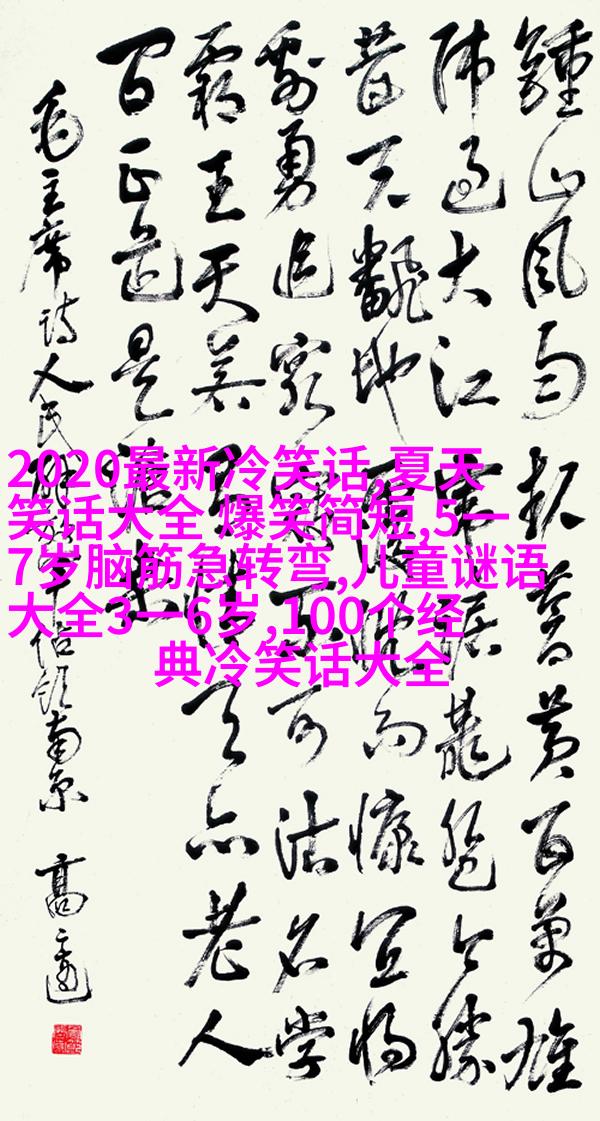 鍾山風雨起蒼黄百萬雄
师過大江虎踞龍盤今勝
昔天翻地覆慨而慷宜将
剩勇追窮寇不可沽名学
霸王天若有情天亦老人
间正道是滄桑
毛主席诗人民解放军占领南京 高
2020最新冷笑话,夏天
笑话大全 爆笑简短,5一
7岁脑筋急转弯,儿童谜语
大全3一6岁,100个经
典冷笑话大全